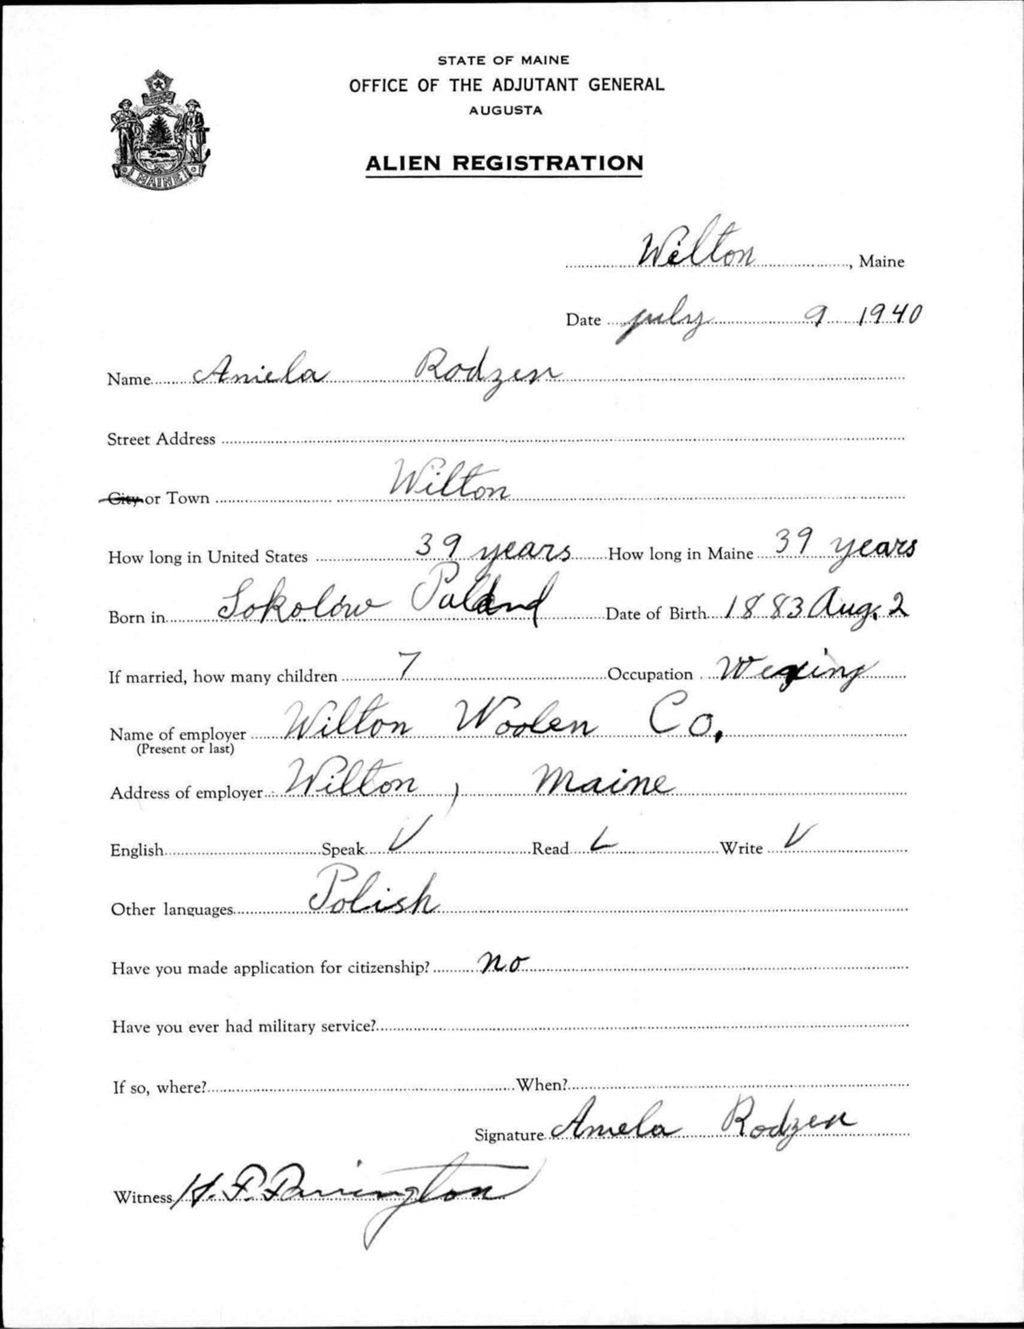 STATE OF MAINE
OFFICE OF THE ADJUTANT GENERAL
AUGUSTA
ALIEN REGISTRATION
MAINE
Wilton, Maine
Date July 9 1940
Name Aniela Rodzen
Street Address
City or Town Wilton
How long in United States 39 years How long in Maine 39 years
Born in Sokolów Poland Date of Birth 1883 Aug. 2
If married, how many children 7 Occupation
Name of employer Wilton Woolen Co.
(Present or last)
Address of employer Wilton, Maine
English Speak V Read L Write V
Other languages Polish
Have you made application for citizenship? no
Have you ever had military service?
If so, where? When?
Signature Aniela Rodzen
Witness H. F.